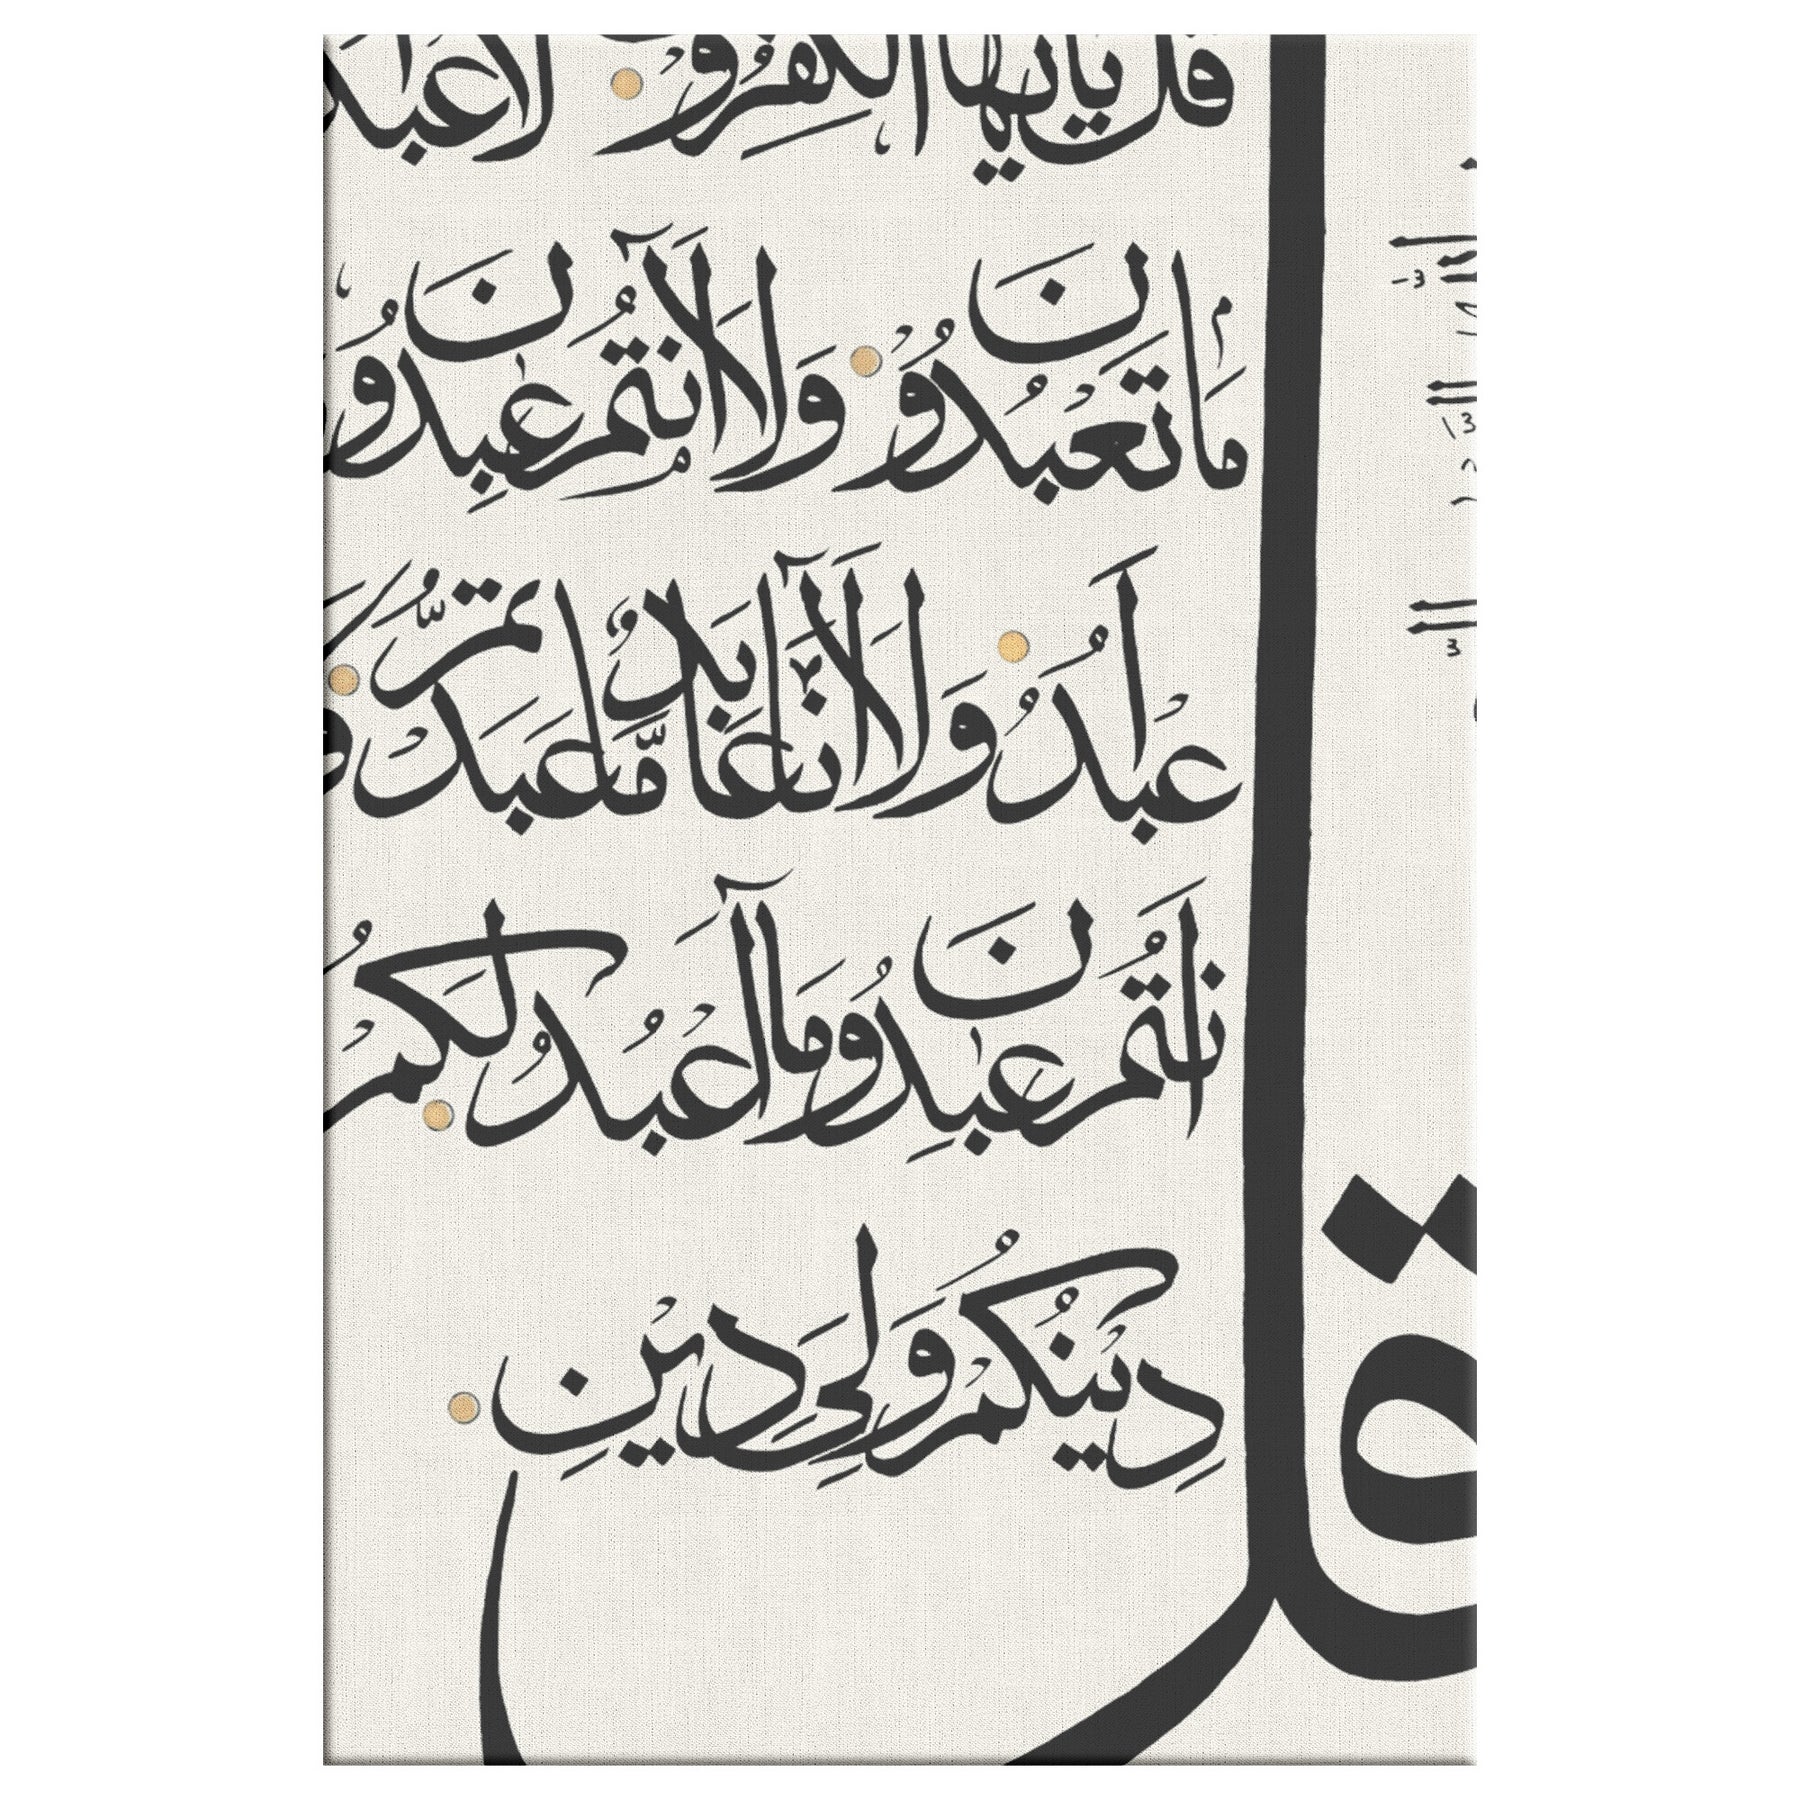 قل يأيها الكفرون لا أعبد
ما تعبدون ولا أنتم عبدون
عبد ولا أنا عابد ما عبدتم
أنتم عبدون ما أعبد لكم
دينكم ولي دين
قل